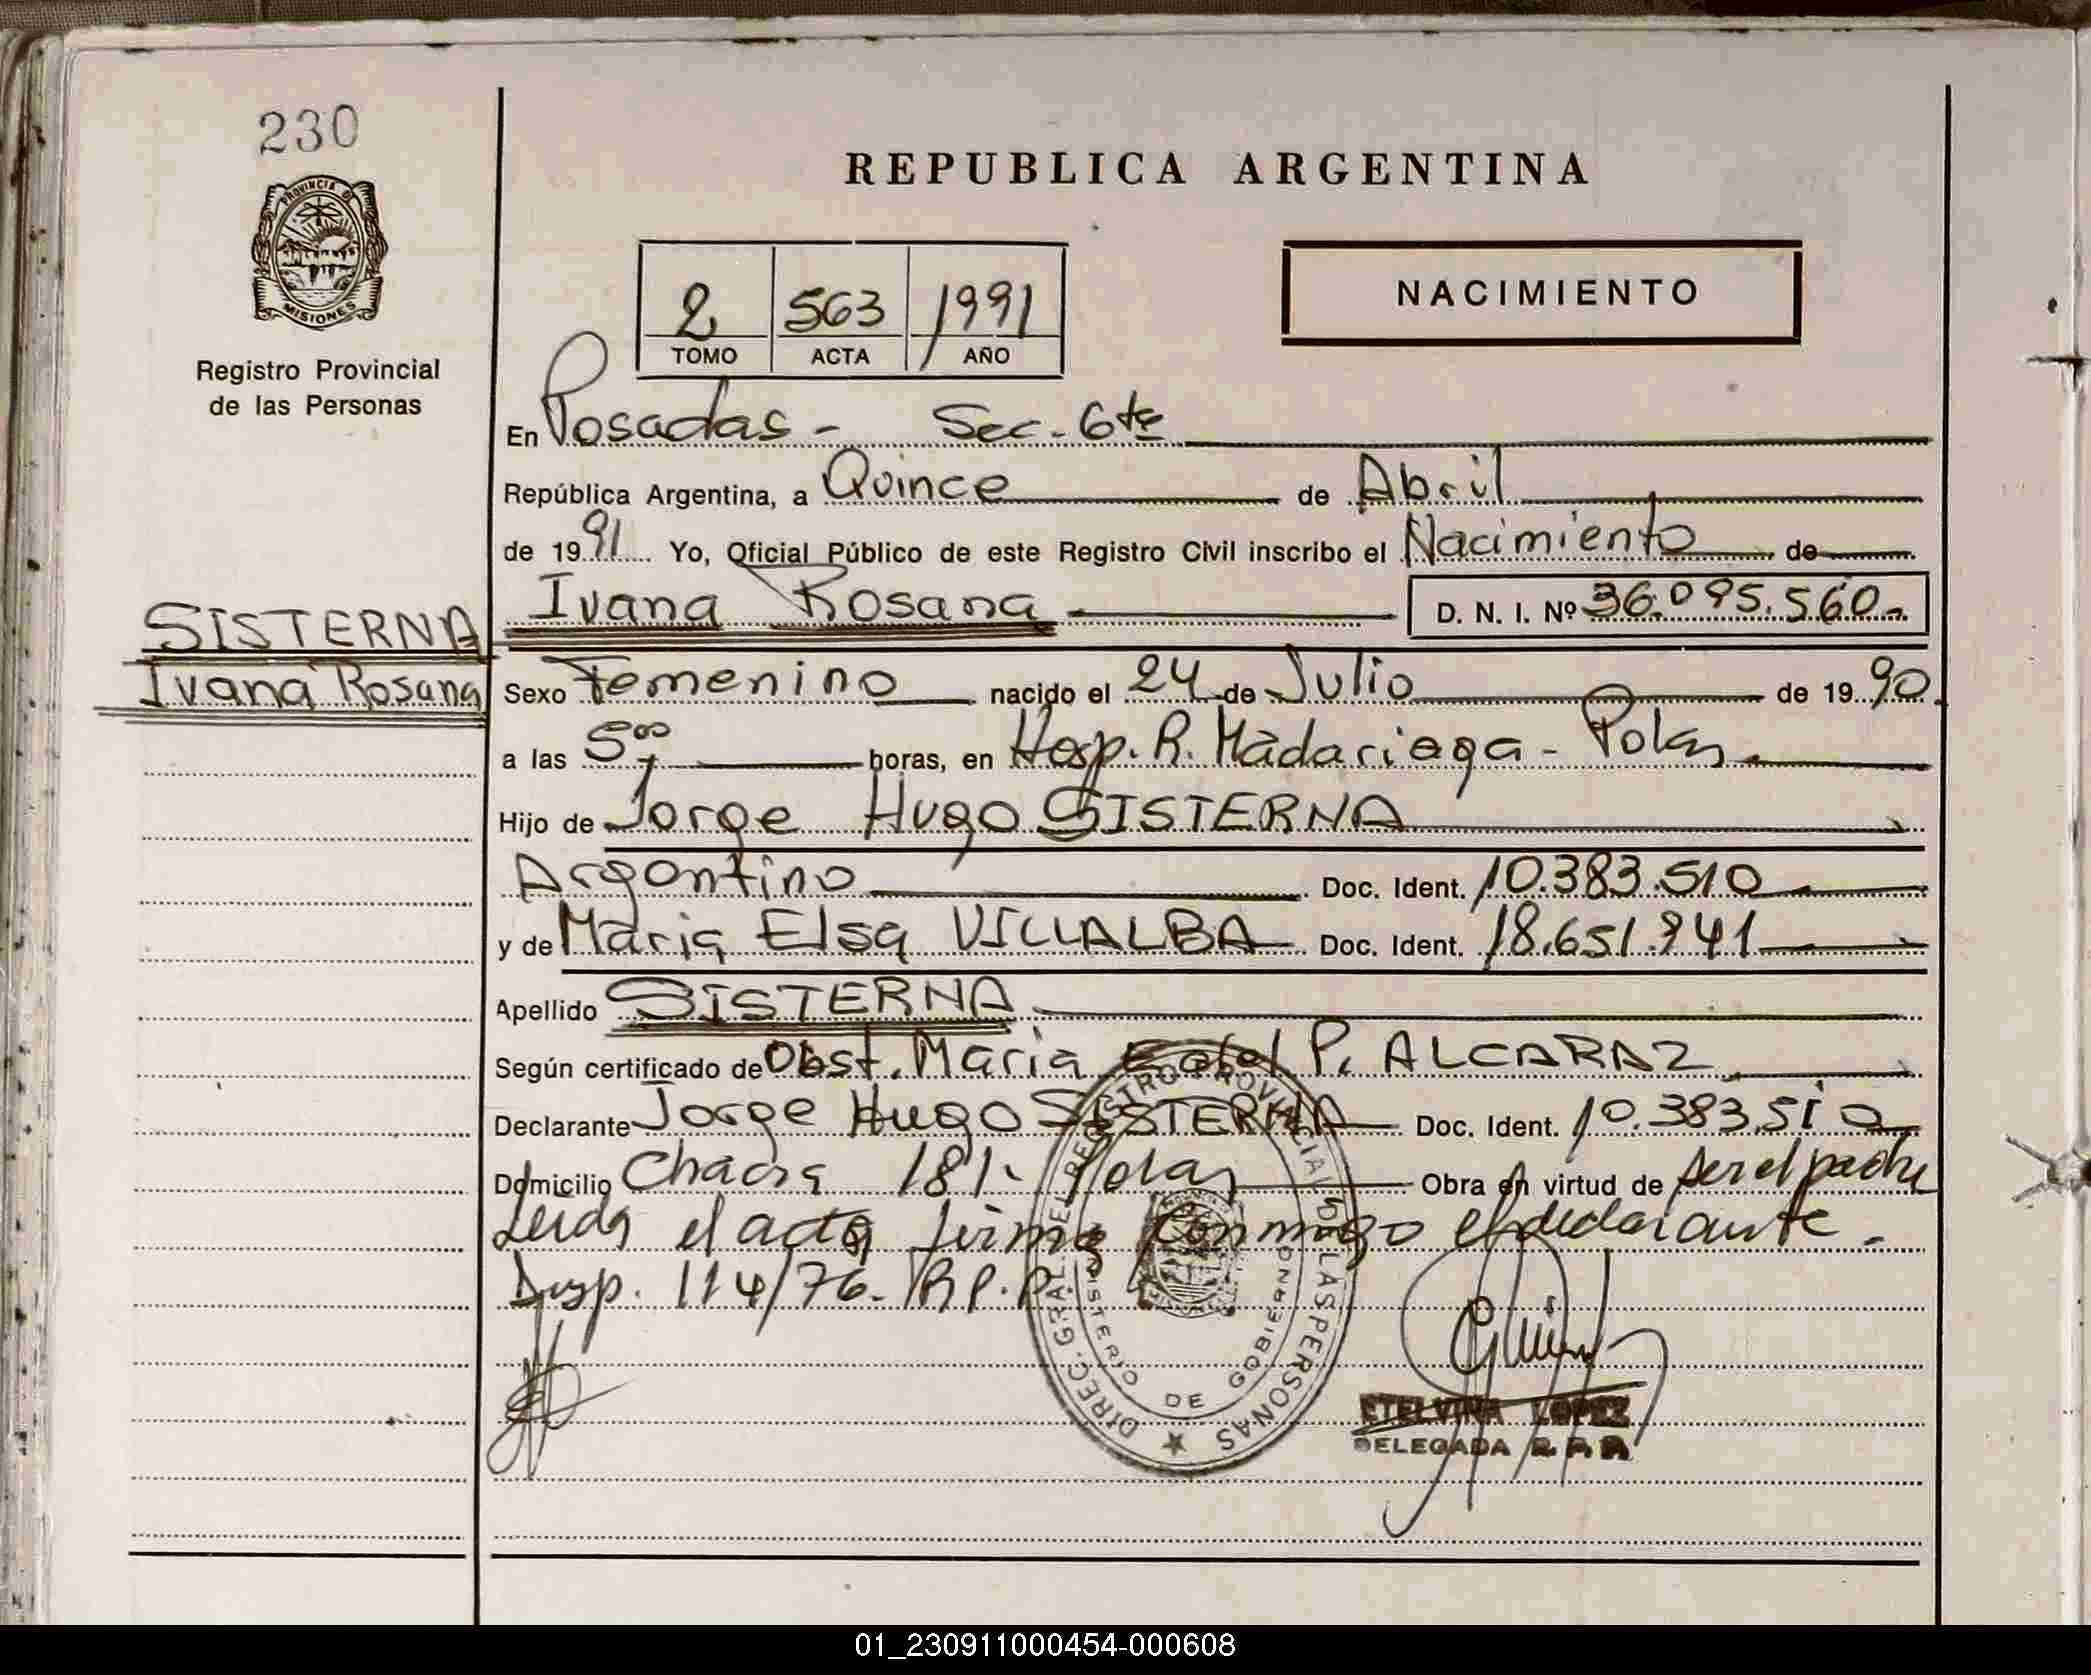 230
PROVINCIA DE
MISIONES
Registro Provincial
de las Personas
SISTERNA
Ivana Rosana
REPUBLICA ARGENTINA
2 563 1991
TOMO ACTA AÑO
NACIMIENTO
En Posadas - Sec. 6ta
República Argentina, a Quince de Abril
de 1991 Yo, Oficial Público de este Registro Civil inscribo el Nacimiento de
Ivana Rosana D. N. I. Nº 36.095.560
Sexo Femenino nacido el 24 de Julio de 1990
a las 5 00 horas, en Hosp. R. Madariaga - Pdas
Hijo de Jorge Hugo SISTERNA
Argentino Doc. Ident. 10.383.510
y de Maria Elsa VILLALBA Doc. Ident. 18.651.941
Apellido SISTERNA
Según certificado de Obst. Maria P. ALCARAZ
Declarante Jorge Hugo SISTERNA Doc. Ident. 10.383.510
Domicilio Chacra 181 - Pdas Obra en virtud de ser el padre
Leida el acta firma conmigo el declarante.
Disp. 114/76. R.P.P.
DIREC. GRAL. DEL REGISTRO PROVINCIAL DE LAS PERSONAS
MINISTERIO DE GOBIERNO
ETELVINA LOPEZ
DELEGADA R. P. P.
01_230911000454-000608